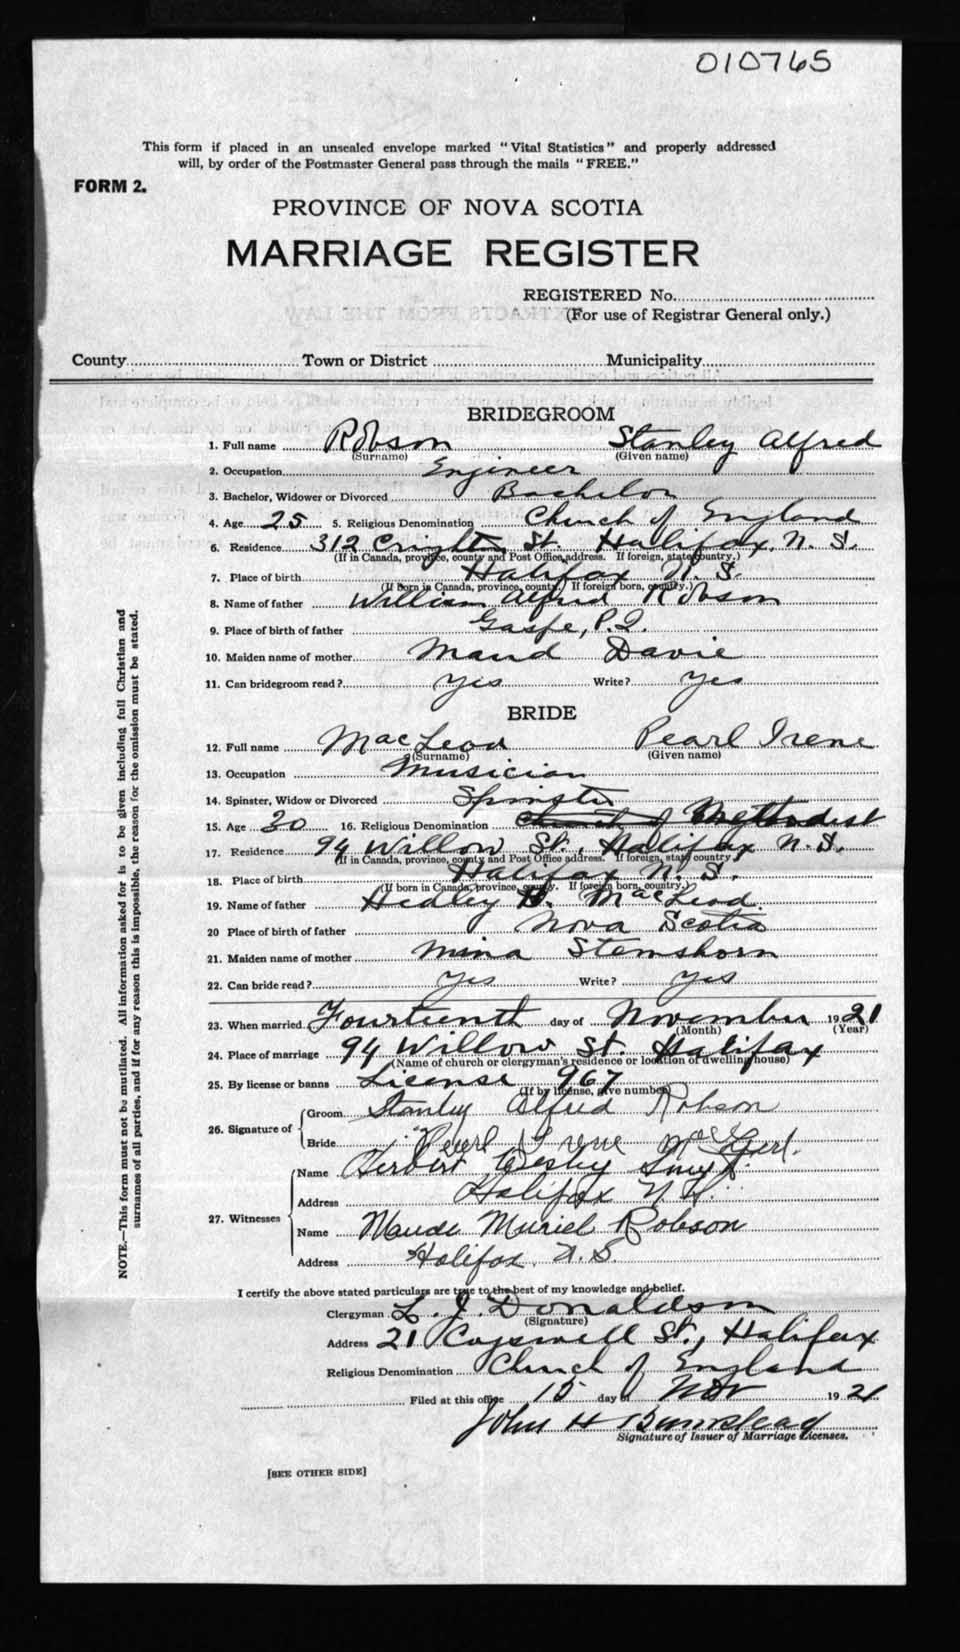 010765
This form if placed in an unsealed envelope marked "Vital Statistics" and properly addressed
will, by order of the Postmaster General pass through the mails "FREE."
FORM 2.
PROVINCE OF NOVA SCOTIA
MARRIAGE REGISTER
REGISTERED No.
(For use of Registrar General only.)
County Town or District Municipality
BRIDEGROOM
1. Full name Robson Stanley Alfred
(Surname) (Given name)
2. Occupation Engineer
3. Bachelor, Widower or Divorced Bachelor
4. Age 25 5. Religious Denomination Church of England
6. Residence 312 Crighton St. Halifax, N. S.
(If in Canada, province, county and Post Office address. If foreign, state country.)
7. Place of birth Halifax N. S.
(If born in Canada, province, county. If foreign born, country.)
8. Name of father William Alfred Robson
9. Place of birth of father Gaspe, P.Q.
10. Maiden name of mother Maud Davie
11. Can bridegroom read? Yes Write? Yes
BRIDE
12. Full name MacLeod Pearl Irene
(Surname) (Given name)
13. Occupation Musician
14. Spinster, Widow or Divorced Spinster
15. Age 30 16. Religious Denomination Church of Methodist
17. Residence 94 Willow St., Halifax N.S.
(If in Canada, province, county and Post Office address. If foreign, state country)
18. Place of birth Halifax N. S.
(If born in Canada, province, county. If foreign born, country.)
19. Name of father Hedley H. MacLeod.
20 Place of birth of father Nova Scotia
21. Maiden name of mother Mina Stemshorn
22. Can bride read? Yes Write? Yes
23. When married Fourteenth day of November 1921
(Month) (Year)
24. Place of marriage 94 Willow St. Halifax
(Name of church or clergyman's residence or location of dwelling house)
25. By license or banns License 967
(If by license, give number)
26. Signature of
Groom Stanley Alfred Robson
Bride Pearl Irene
27. Witnesses
Name Herbert Wesley
Address Halifax
Name Maude Muriel Robson
Address Halifax, N.S.
I certify the above stated particulars are true to the best of my knowledge and belief.
Clergyman L. J. Donaldson
(Signature)
Address 21 Cogswell St., Halifax
Religious Denomination Church of England
Filed at this office 15 day of Nov 1921
John H
Signature of Issuer of Marriage Licenses.
[SEE OTHER SIDE]
NOTE.—This form must not be mutilated. All information asked for is to be given including full Christian and
surnames of all parties, and if for any reason this is impossible, the reason for the omission must be stated.